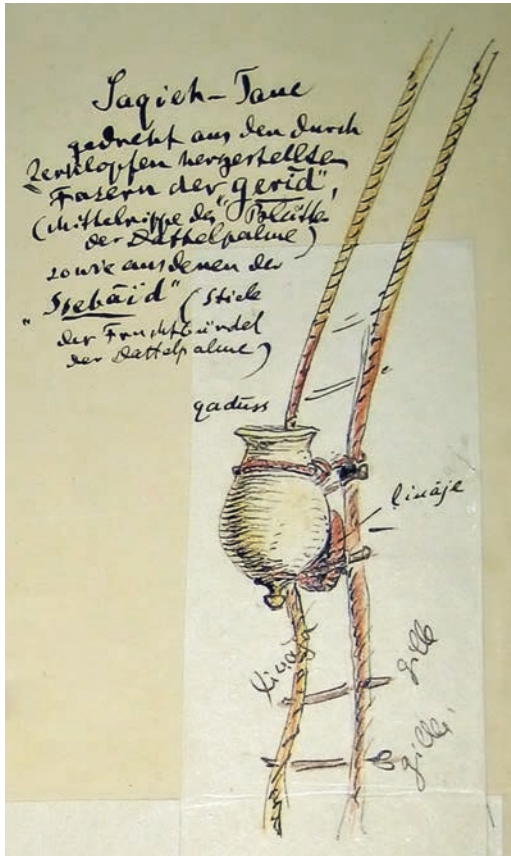 Saqieh-Taue
gedreht aus den durch
Zerklopfen hergestellten
Fasern der "gerīd",
(Mittelrippe des Blattes
der Dattelpalme)
sowie aus denen der
"Ssebāīd" (Stiele
der Fruchtbündel
der Dattelpalme)
qadūss
lināje
lināje
gille
gille